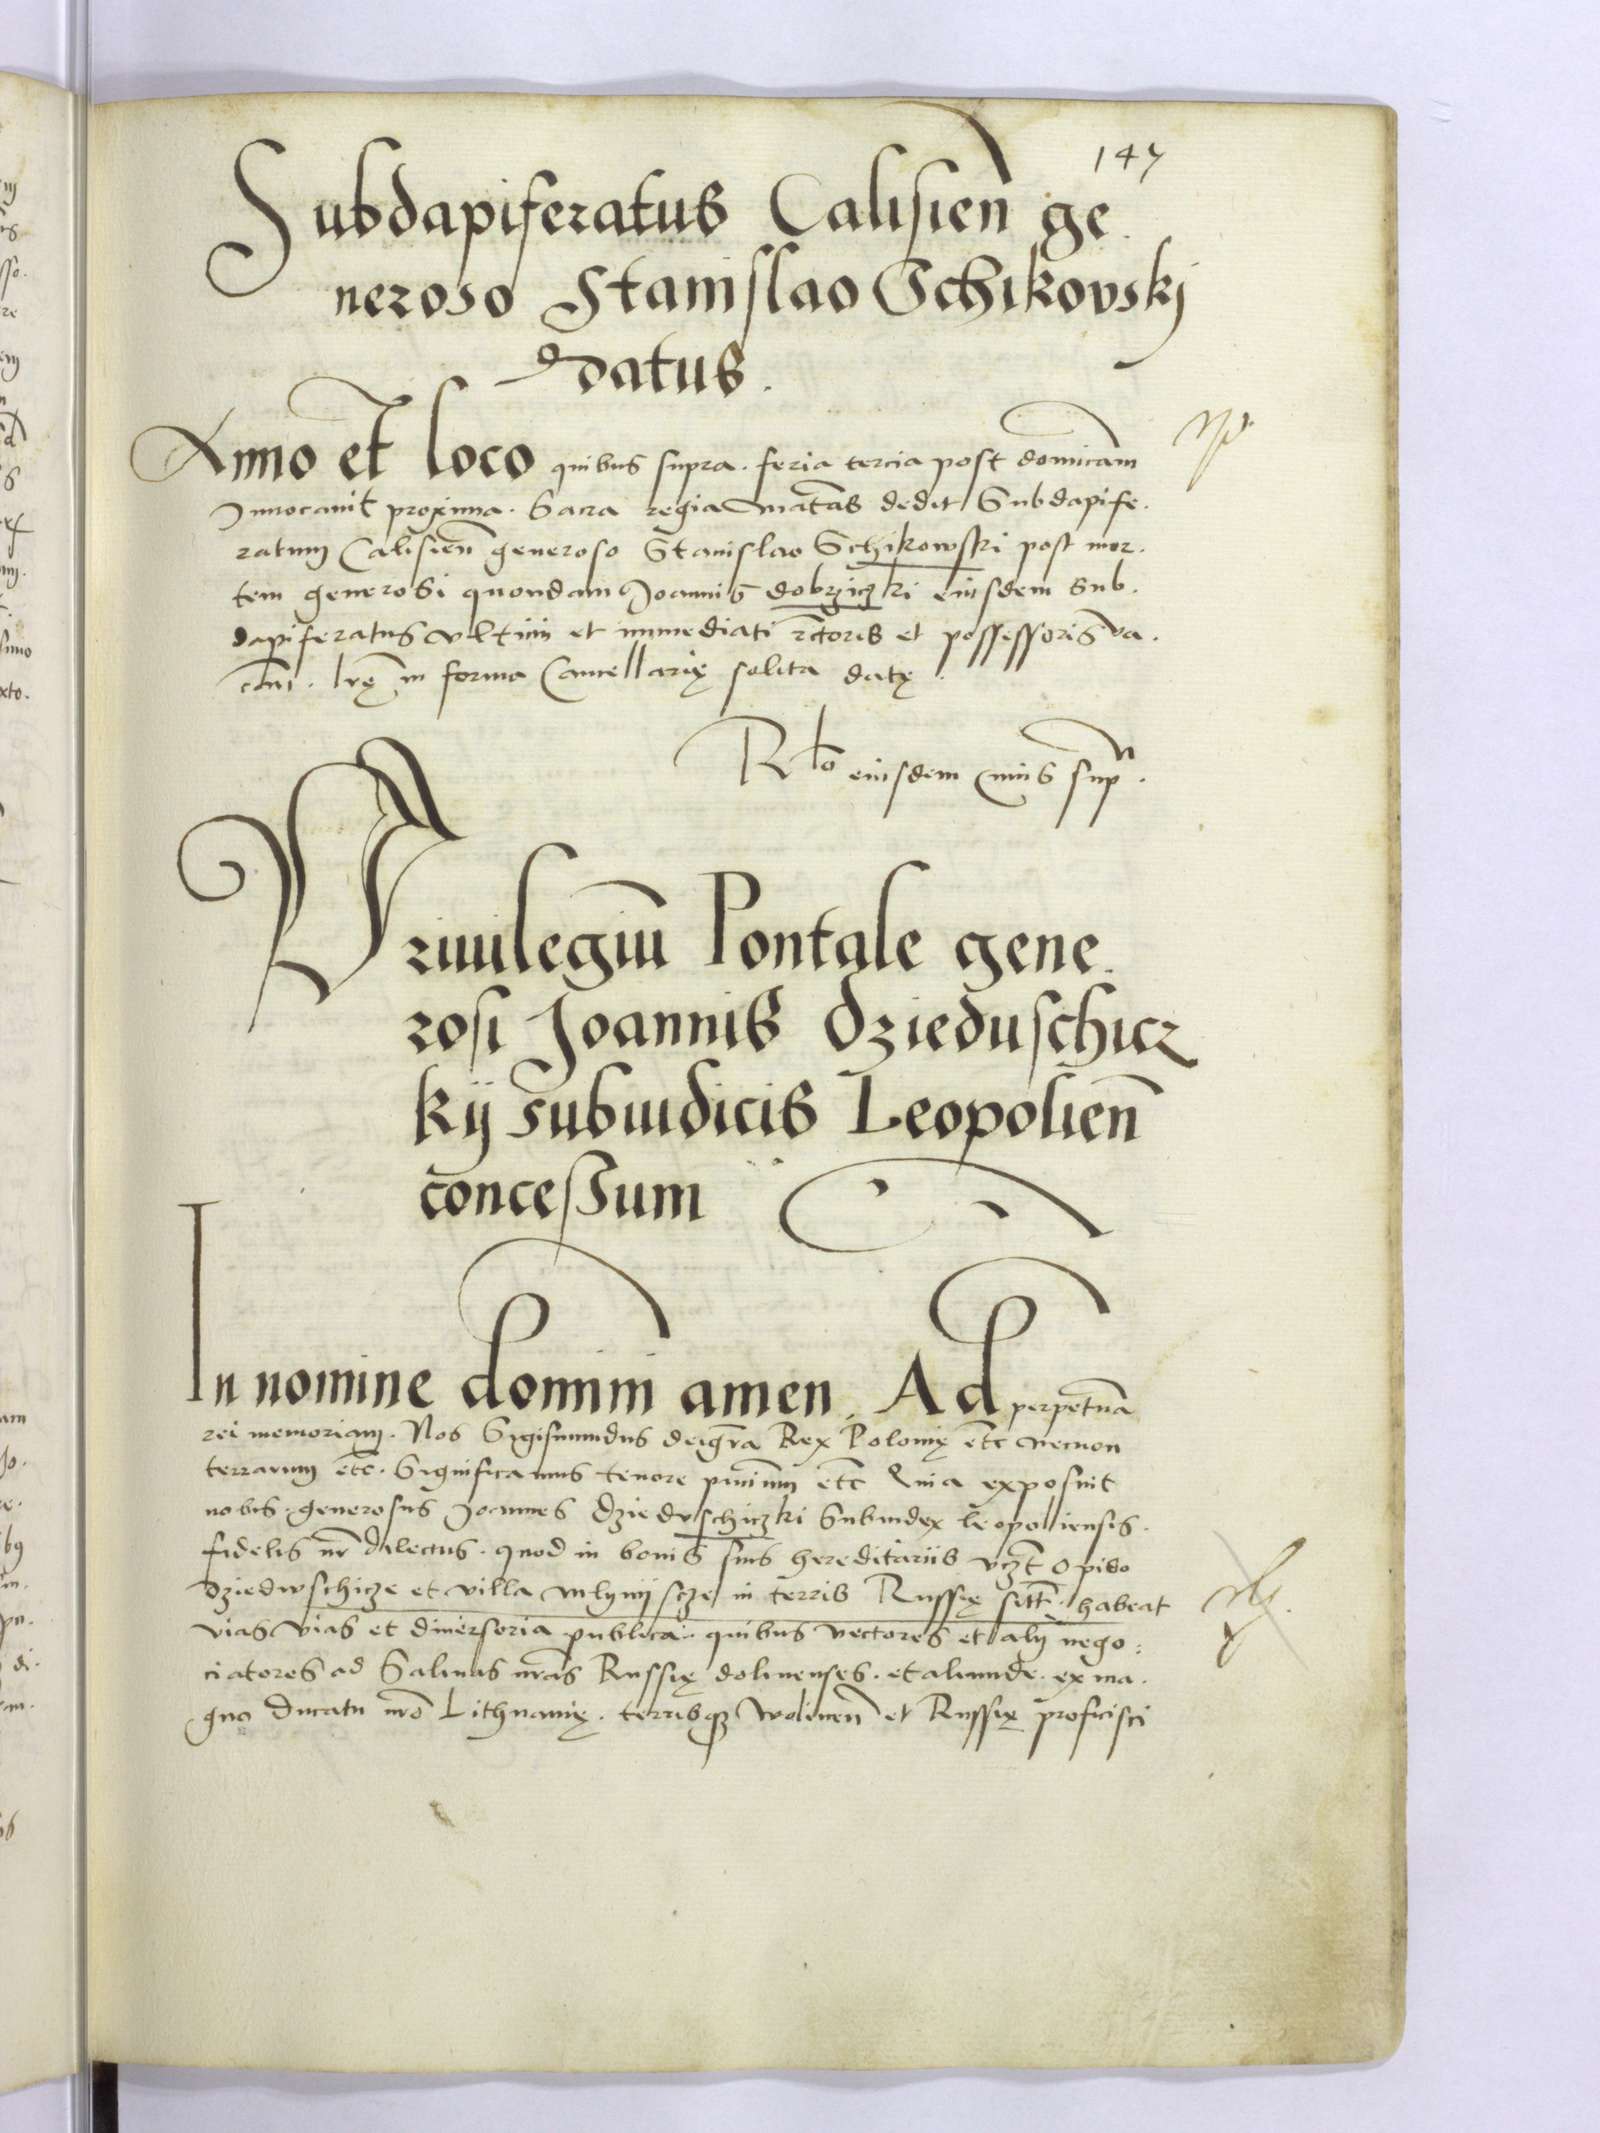 147
Subdapiferatus Calisien ge
neroso Stanislao Schikovskj
datus.
Anno et loco quibus supra. feria tercia post domicam
Jnvocavit proxima. Sacra regia Mtas dedit Subdapife.
ratum Calisien generoso Stanislao Schikowski post mor.
tem generosi quondam Joannis dobrziczki eiusdem sub.
dapiferatus vltimi et immediati rectoris et possessoris va.
can. lrę in forma Cancellarię solita datę.
Rlo eiusdem cuius supra.
Privilegiu Pontale gene.
rosi Joannis Dzieduschicz
kij subiudicis Leopolien
concessum
In nomine domini amen. Ad perpetua
rei memoriam. Nos Sigismundus dei gra Rex Polonię etc necnon
terrarum etc. Significamus tenore pntium etc Quia exposuit
nobis. generosus Joannes Dzieduschiczki Subiudex leopoliensis.
fidelis nr dilectus. quod in bonis suis hereditariis vczt Opido
Dziedwschicze et villa mlynij scze in terris Russię sitt. habeat
vias vias et diversoria publica. quibus vectores et alij nego:
ciatores ad Salinas nras Russię dolinenses. et aliunde. ex ma.
gno Ducatu nro Lithuanię. terrisq Wolinen et Russię proficisci